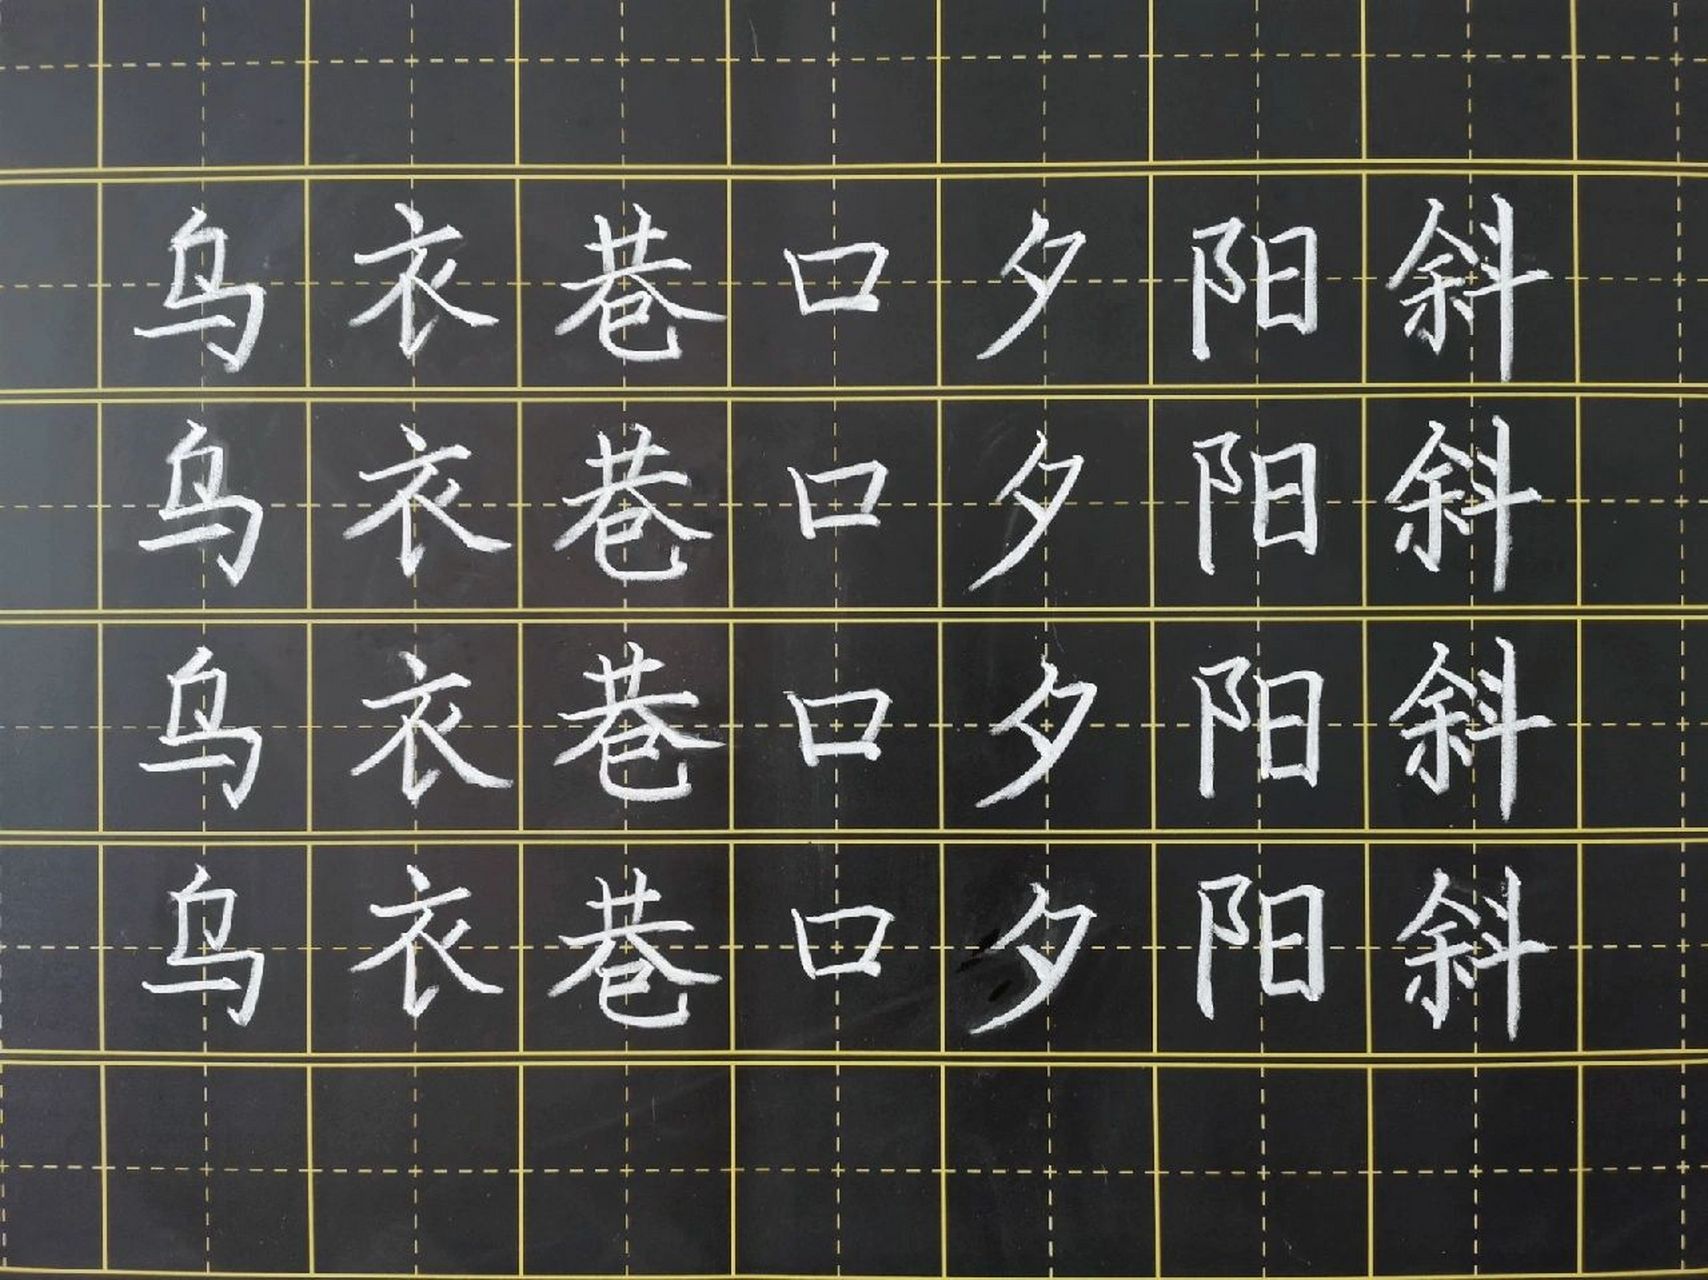 乌衣巷口夕阳斜
乌衣巷口夕阳斜
乌衣巷口夕阳斜
乌衣巷口夕阳斜